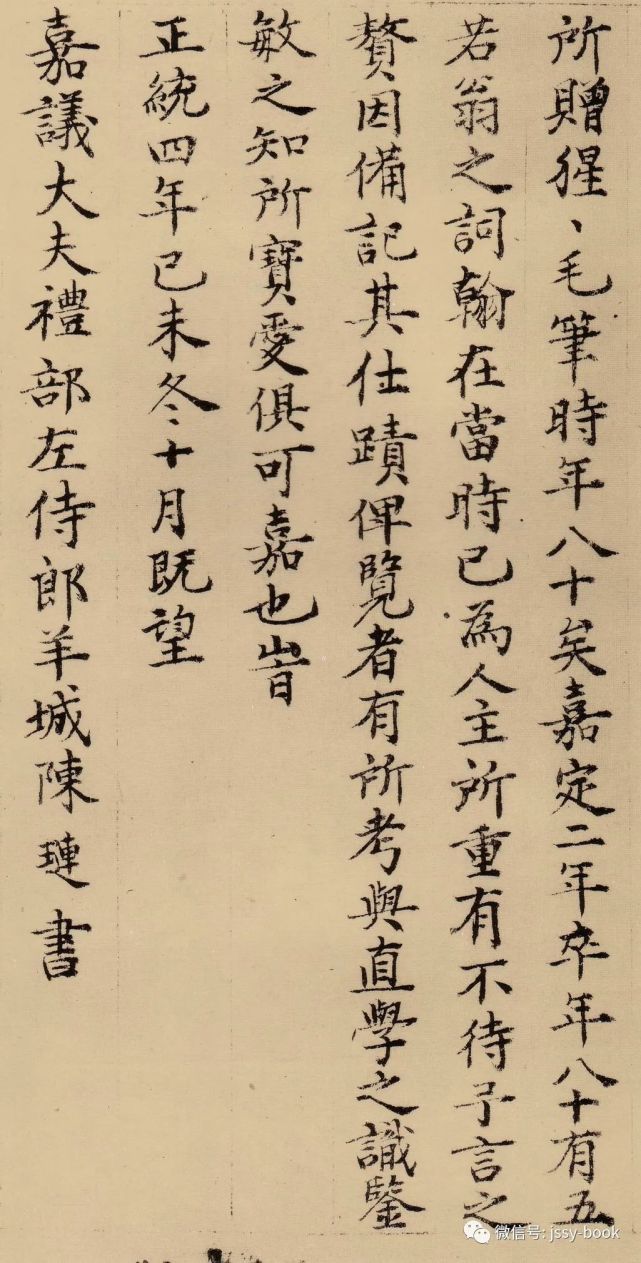 所贈猩、毛筆時年八十矣嘉定二年卒年八十有五
若翁之詞翰在當時已為人主所重有不待予言之
贅因備記其仕蹟俾覽者有所考與直學之識鑒
敏之知所寶愛俱可嘉也旹
正統四年己未冬十月既望
嘉議大夫禮部左侍郎羊城陳璉書
微信号: jssy-book